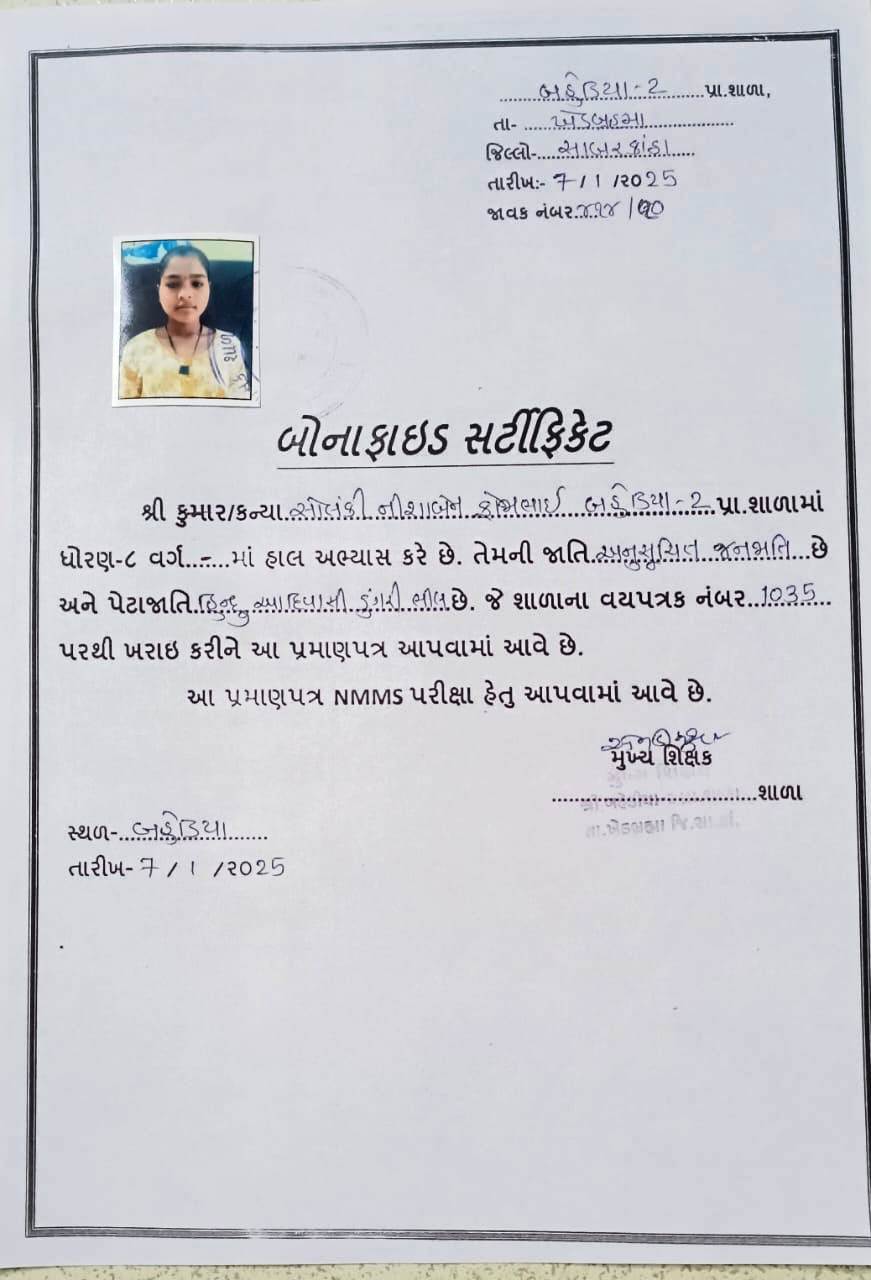 બહેડિયા-2 પ્રા.શાળા,
તા- ખેડબ્રહ્મા
જિલ્લો- સાબરકાંઠા
તારીખ:- 7/1/૨૦25
જાવક નંબર
શાળ
બોનાફાઇડ સર્ટીફિકેટ
શ્રી કુમાર/કન્યા સોલંકી નીશાબેન બહેડિયા-2 પ્રા.શાળામાં
ધોરણ-૮ વર્ગ - માં હાલ અભ્યાસ કરે છે. તેમની જાતિ અનુસૂચિત જનજાતિ છે
અને પેટાજાતિ હિન્દુ આદિવાસી ડુંગરી ભીલ છે. જે શાળાના વયપત્રક નંબર 1035
પરથી ખરાઇ કરીને આ પ્રમાણપત્ર આપવામાં આવે છે.
આ પ્રમાણપત્ર NMMS પરીક્ષા હેતુ આપવામાં આવે છે.
મુખ્ય શિક્ષક
શાળા
સ્થળ- બહેડિયા
તારીખ- 7/1/૨૦25